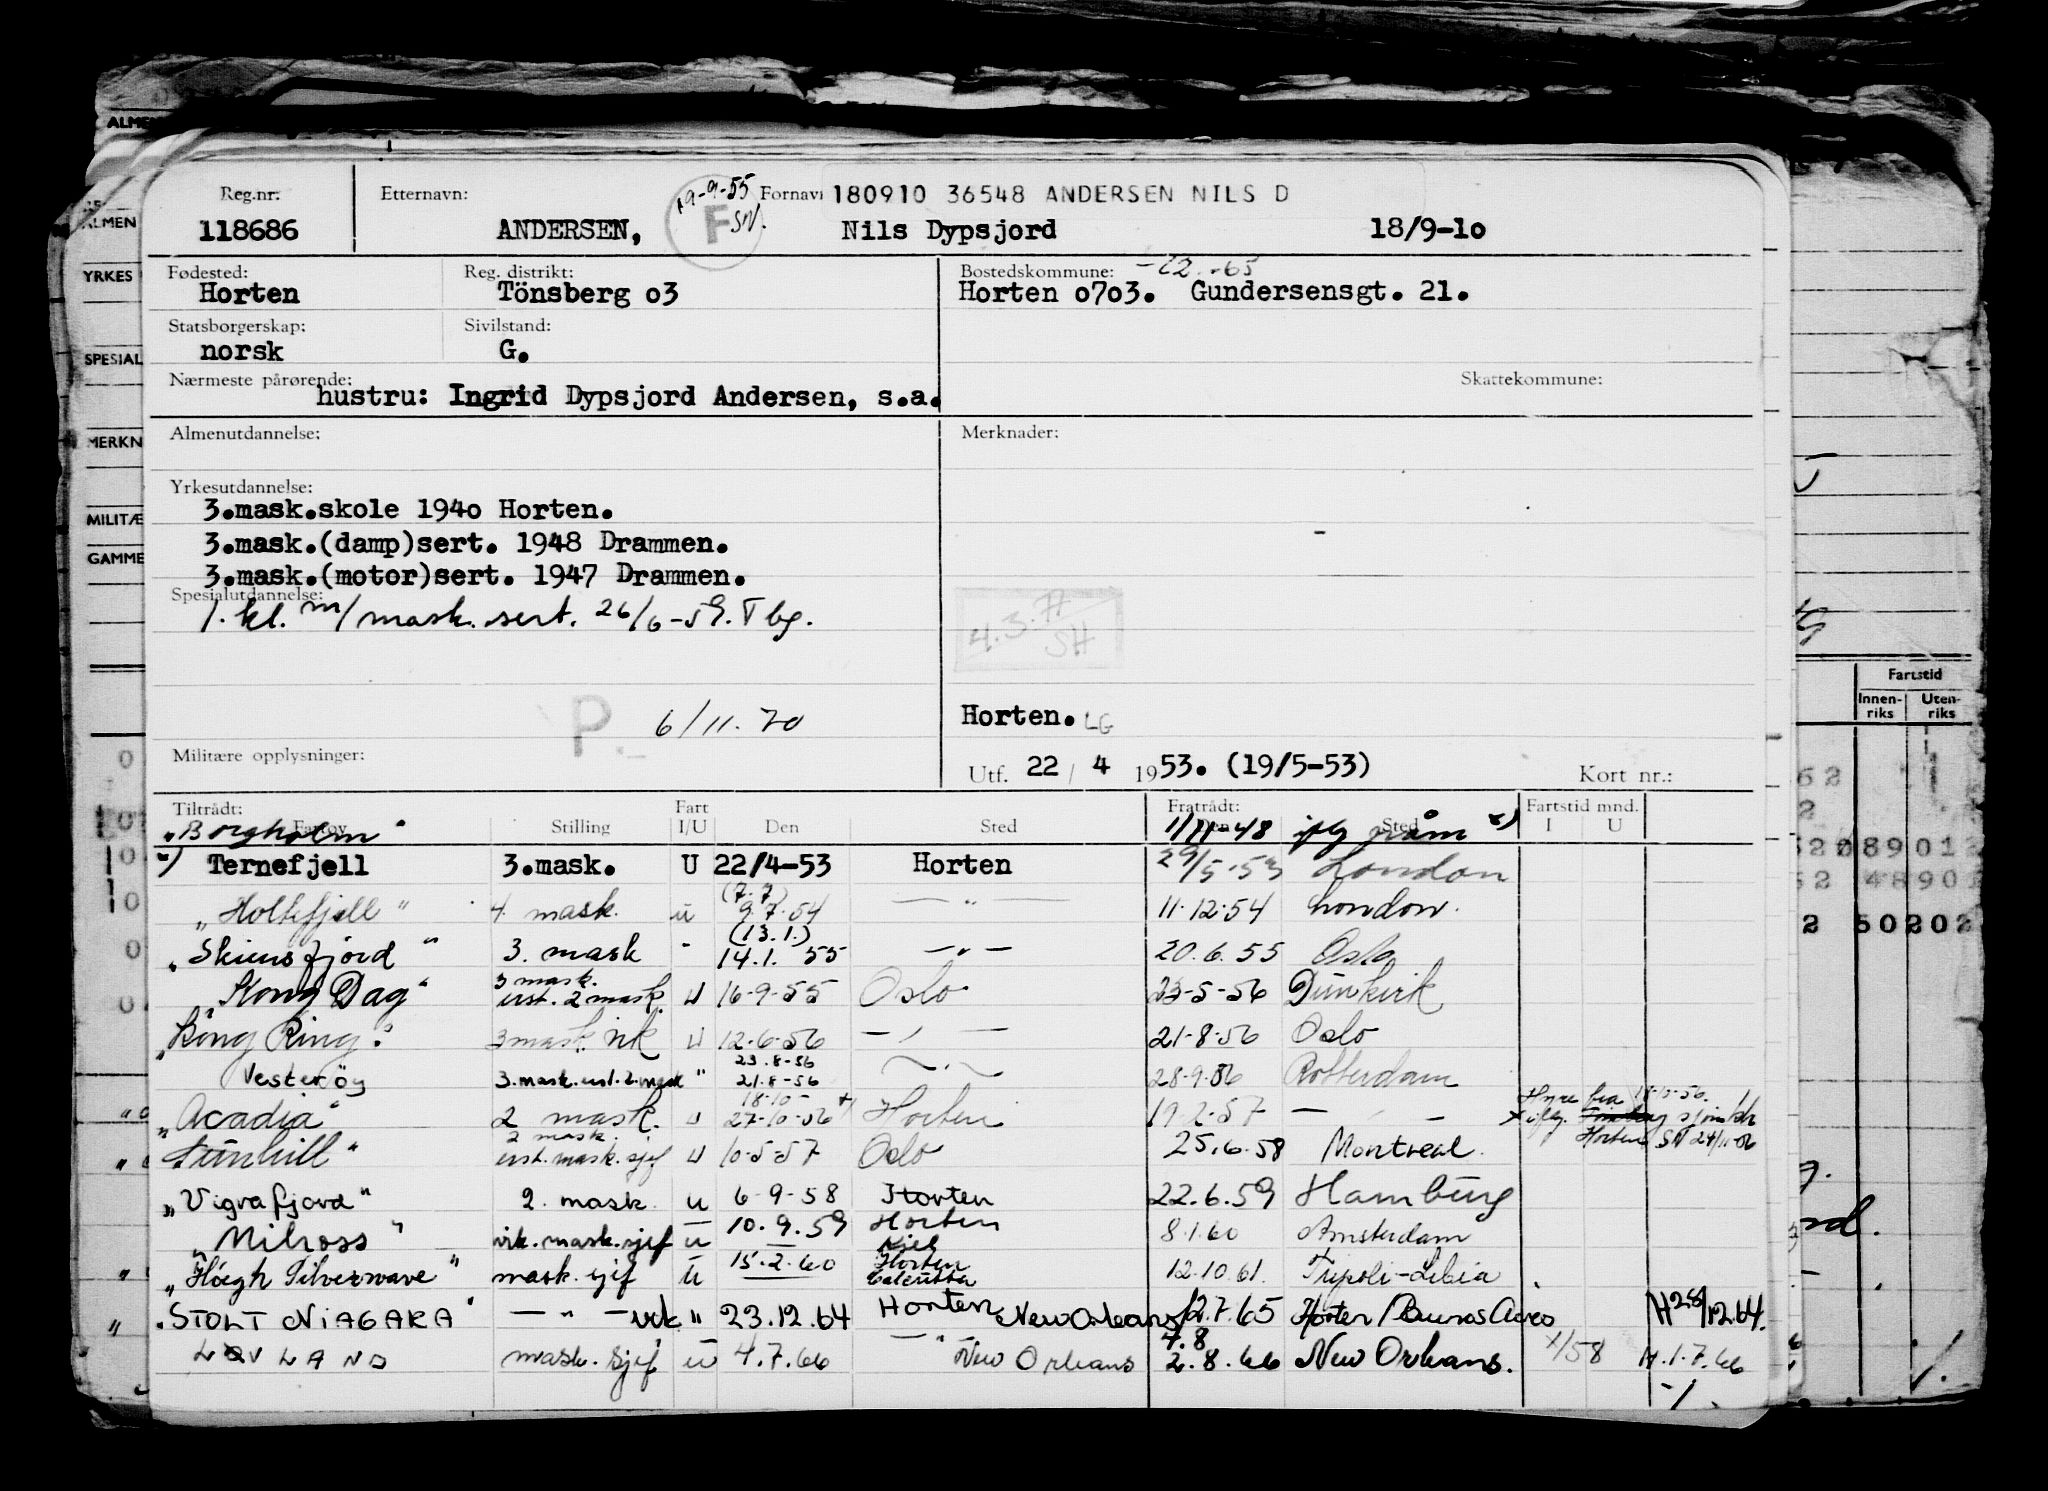 Reg.nr. Etternavn: 19-9-55 Fornavn 180910 36548 ANDERSEN NILS D
118686 ANDERSEN, F SN. Nils Dypsjord 18/9-1o
Fødested: Reg. distrikt: Bostedskommune:
Horten Tönsberg o3 Horten o7o3. Gundersensgt. 21.
Statsborgerskap: Sivilstand:
norsk G.
Nærmeste pårørende: Skattekommune:
hustru: Ingrid Dypsjord Andersen, s.a.
Almenutdannelse: Merknader:
Yrkesutdannelse:
3.mask.skole 194o Horten.
3.mask.(damp)sert. 1948 Drammen.
3.mask.(motor)sert. 1947 Drammen.
Spesialutdannelse:
1. kl. m/ mask. sert. 26/6-59. Tbg.
4.3.77
SH
P. 6/11.70 Horten. LG
Militære opplysninger: Utf. 22 / 4 1953. (19/5-53) Kort nr.:
Tiltrådt: Fart Fratrådt: Fartstid mnd.
Fartøy Stilling I/U Den Sted Den Sted I U
"Borgholm" 1/7-48 x)
x) Ternefjell 3.mask. U 22/4-53 Horten 29/5.53 London
(7.7)
"Holtefjell" 4. mask. u 9.7.54 — " — 11.12.54 London.
(13.1.)
"Skiensfjord" 3. mask " 14.1. 55 — " — 20.6.55 Oslo
3 mask.
"Kong Dag" ust. 2 mask. U 16-9-55 Oslo 23-5-56 Dunkirk
"Kong Ring" 3 mask. vik U 12-6-56 — " — 21-8-56 Oslo
23.8-56
Vesterøy 3.mask.ust.2.mask " 21.8-56 — " — 28-9.56 Rotterdam
18-10- Hyre fra 18-10-56.
"Acadia" 2 mask. U 27-10-56 x Horten 19-2-57 — " — x iflg.
2 mask. Horten SN 24/11-56
"Sunhill" ust. mask. sjef U 10-5-57 Oslo 25.6.58 Montreal.
"Vigrafjord" 2. mask. u 6-9-58 Horten 22.6.59 Hamburg
"Milross" vik. mask. sjef u 10.9.59 Horten Kiel 8.1.60 Amsterdam
"Höegh Silverwave" mask. sjef u 15.2.60 Horten Calcutta 12.10.61. Tripoli-Libia
"STOLT NIAGARA" — " — vik " 23.12.64 Horten New Orleans 12.7.65 Horten / Buenos Aires H 28/12.64.
4.8
LOVLAND mask. sjef u 4.7.66 — " — New Orleans 2.8.66 New Orleans. x/58 H.1.7.66
-/.
ALMEN
YRKES
SPESIAL
MERKN
MILITÆ
GAMME
Fartstid
Innen-riks Uten-riks